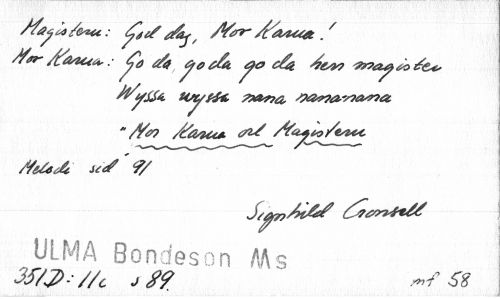 Magistern: God dag, Mor Karna!
Mor Karna: Go da, go da go da herr magister
Wyssa wyssa nana nana-nana
"Mor Karna och Magistern
Melodi sid 91
Signhild Cronsell
ULMA Bondeson Ms
351D:11c s 89.
mf 58